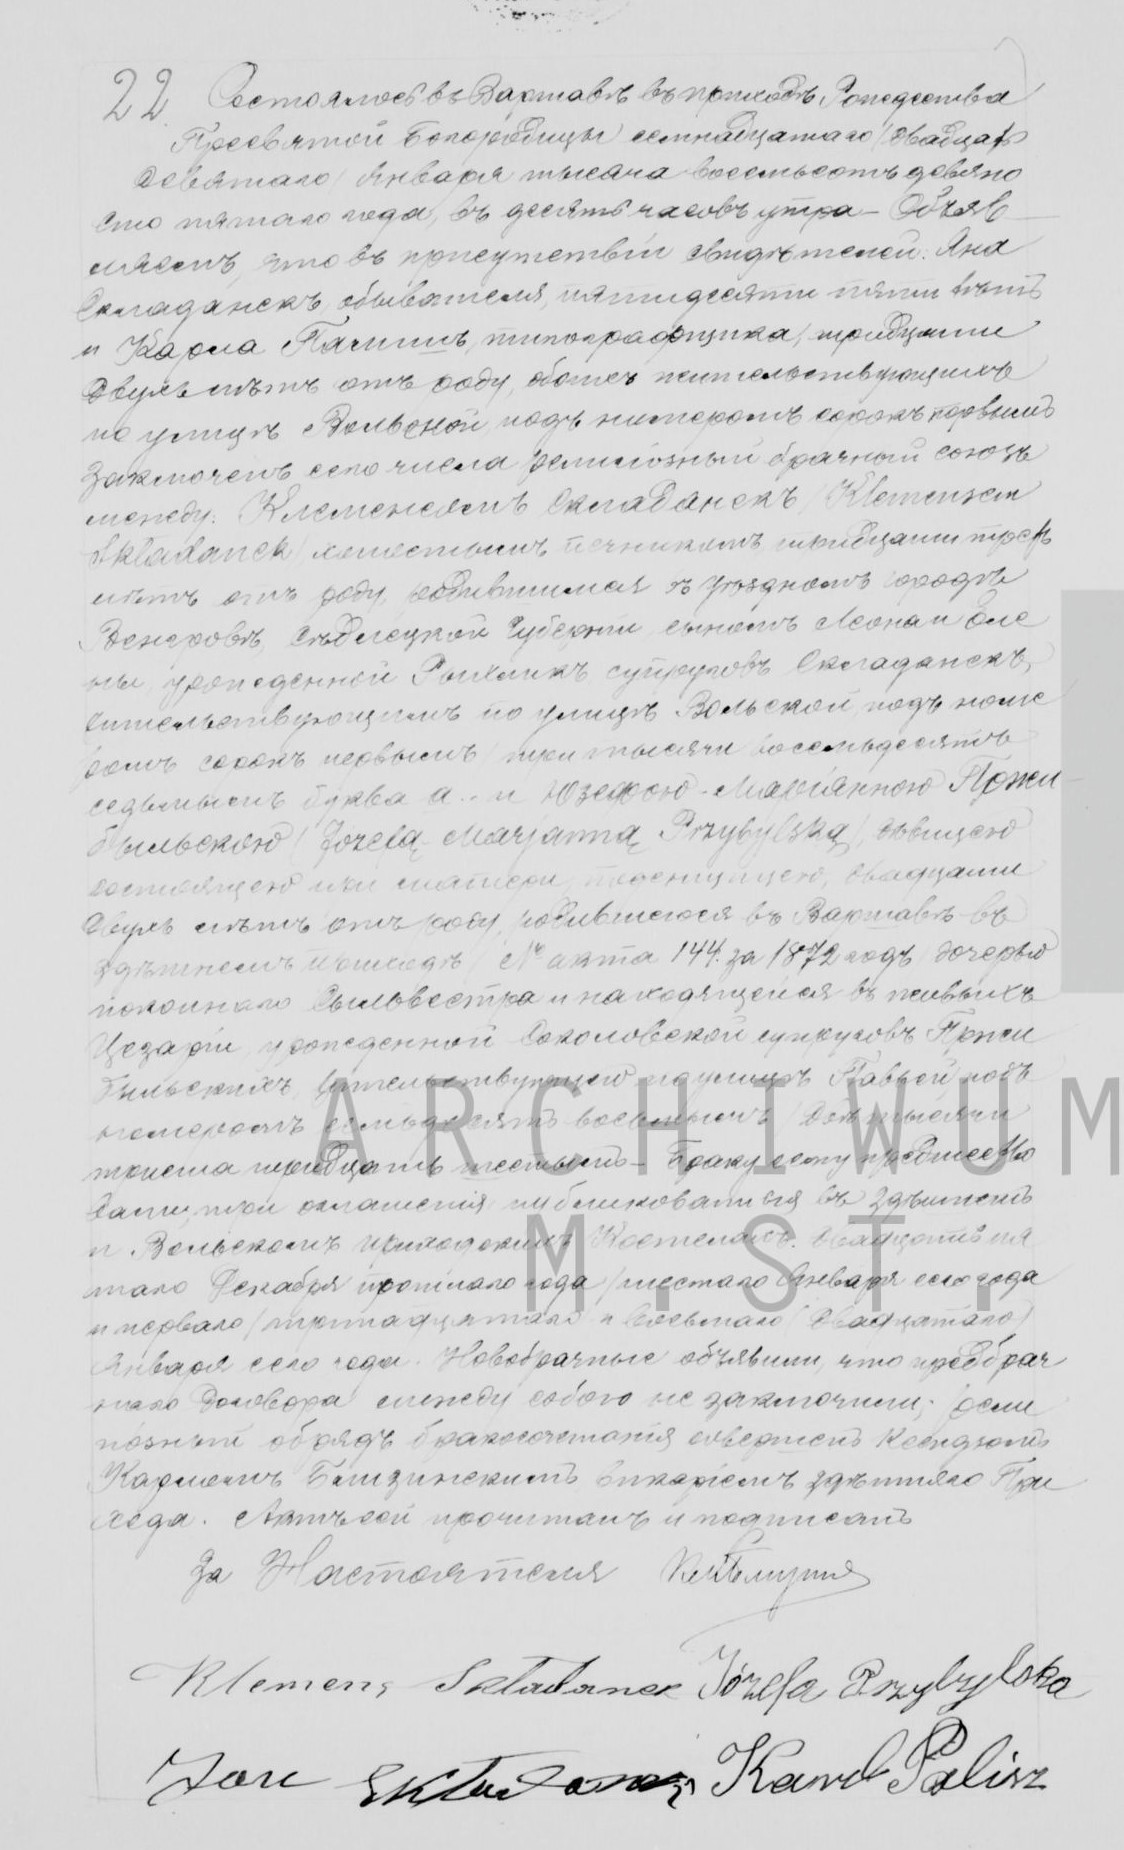 22 Состоялось въ Варшавѣ въ приходѣ Рождества
Пресвятой Богородицы семнадцатаго (двадцать
девятаго) Января тысяча восемьсотъ девяно
сто пятаго года, въ десять часовъ утра – Объяв
ляемъ, что въ присутствіи свидѣтелей: Яна
Складанекъ, обывателя, пятидесяти пяти лѣтъ
и Карла Палишъ, типографщика, тридцати
двухъ лѣтъ отъ роду, обоихъ жительствующихъ
по улицѣ Вольской подъ номеромъ сорокъ первымъ
заключенъ сего числа религіозный брачный союзъ
между: Клеменсомъ Складанекъ (Klemensem
Składanek) холостымъ печникомъ тридцати трехъ
лѣтъ отъ роду, родившимся въ уѣздномъ городѣ
Венгровѣ, Сѣдлецкой Губерніи, сыномъ Леона и Еле
ны, урожденной Рыхликъ супруговъ Складанекъ,
жительствующимъ по улицѣ Вольской, подъ номе
ромъ сорокъ первымъ (три тысячи восемьдесятъ
седьмымъ буква а.. и Юзефою-Маріанною Пржи
быльскою (Józefą-Marjanną Przybylską), дѣвицею
состоящею при матери, поденщицею, двадцати
двухъ лѣтъ отъ роду, родившеюся въ Варшавѣ въ
здѣшнемъ приходѣ (№ акта 144. за 1872 годъ) дочерью
покойнаго Сыльвестра и находящейся въ живыхъ
Цезаріи, урожденной Соколовской супруговъ Пржи
быльскихъ, жительствующею по улицѣ Павьей, подъ
номеромъ семьдесятъ восьмымъ (двѣ тысячи
триста тридцать шестымъ – Браку сему предшество
вали, три оглашенія публикованныя въ здѣшнемъ
и Вольскомъ приходскихъ Костелахъ: двадцать пя
таго Декабря прошлаго года (шестаго Января сего года
и перваго (тринадцатаго и восьмаго (двадцатаго)
Января сего года. Новобрачные объявили, что предбрач
наго договора между собою не заключили; рели
гіозный обрядъ бракосочетанія совершенъ Ксендзомъ
Карломъ Близинскимъ викаріемъ здѣшняго При
хода. Актъ сей прочитанъ и подписанъ
За Настоятеля
Klemens Składanek Józefa Przybylska
Jan Składanek Karol Palisz
ARCHIWUM
M. ST.